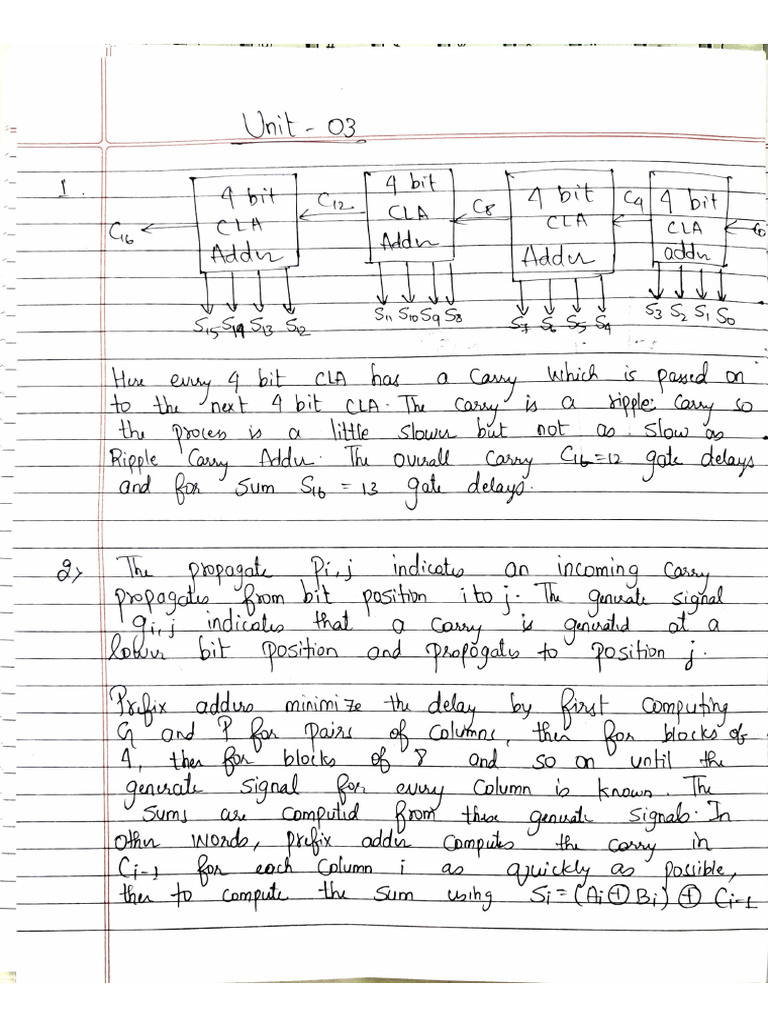 Unit - 03
1.
4 bit CLA Adder
4 bit CLA Adder
4 bit CLA Adder
4 bit CLA adder
C16 C12 C8 C4 C0
S15 S14 S13 S12 S11 S10 S9 S8 S7 S6 S5 S4 S3 S2 S1 S0
Here every 4 bit CLA has a carry which is passed on
to the next 4 bit CLA. The carry is a ripple carry so
the process is a little slower but not as slow as
Ripple Carry Adder. The overall carry C16 = 12 gate delays
and for sum S16 = 13 gate delays.
2> The propagate Pi,j indicates an incoming carry
propagates from bit position i to j. The generate signal
gi,j indicates that a carry is generated at a
lower bit position and propogates to position j.
Prefix adders minimize the delay by first computing
G and P for pairs of columns, then for blocks of
4, then for blocks of 8 and so on until the
generate signal for every column is known. The
sums are computed from these generate signals. In
other words, prefix adder computes the carry in
Ci-1 for each column i as quickly as possible,
then to compute the sum using Si = (Ai ⊕ Bi) ⊕ Ci-1